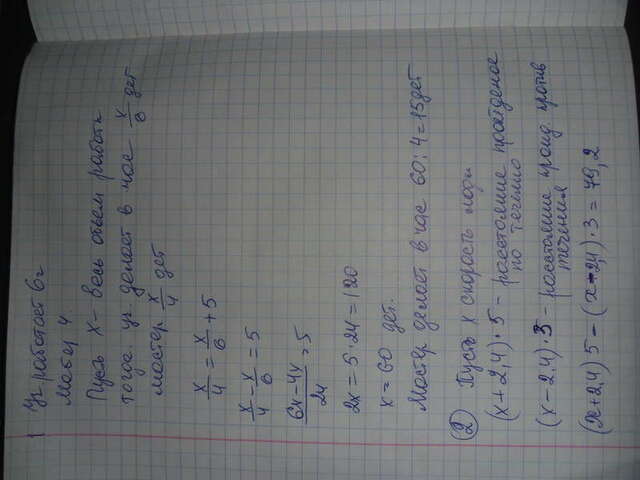 1 Уч. работает 6ч
Мастер 4.
Пусть x – весь объем работы
тогда. уч. делает в час x/6 дет
мастер x/4 дет
x/4 = x/6 + 5
x/4 - x/6 = 5
6x-4x/24 = 5
2x = 5·24 = 120
x = 60 дет.
Мастер делает в час 60:4=15дет
2 Пусть x скорость лодки
(x+2,4)·5 – расстояние пройденое
по течению
(x-2,4)·3 – расстояние пройд. против
течения
(x+2,4)5-(x-2,4)·3=79,2